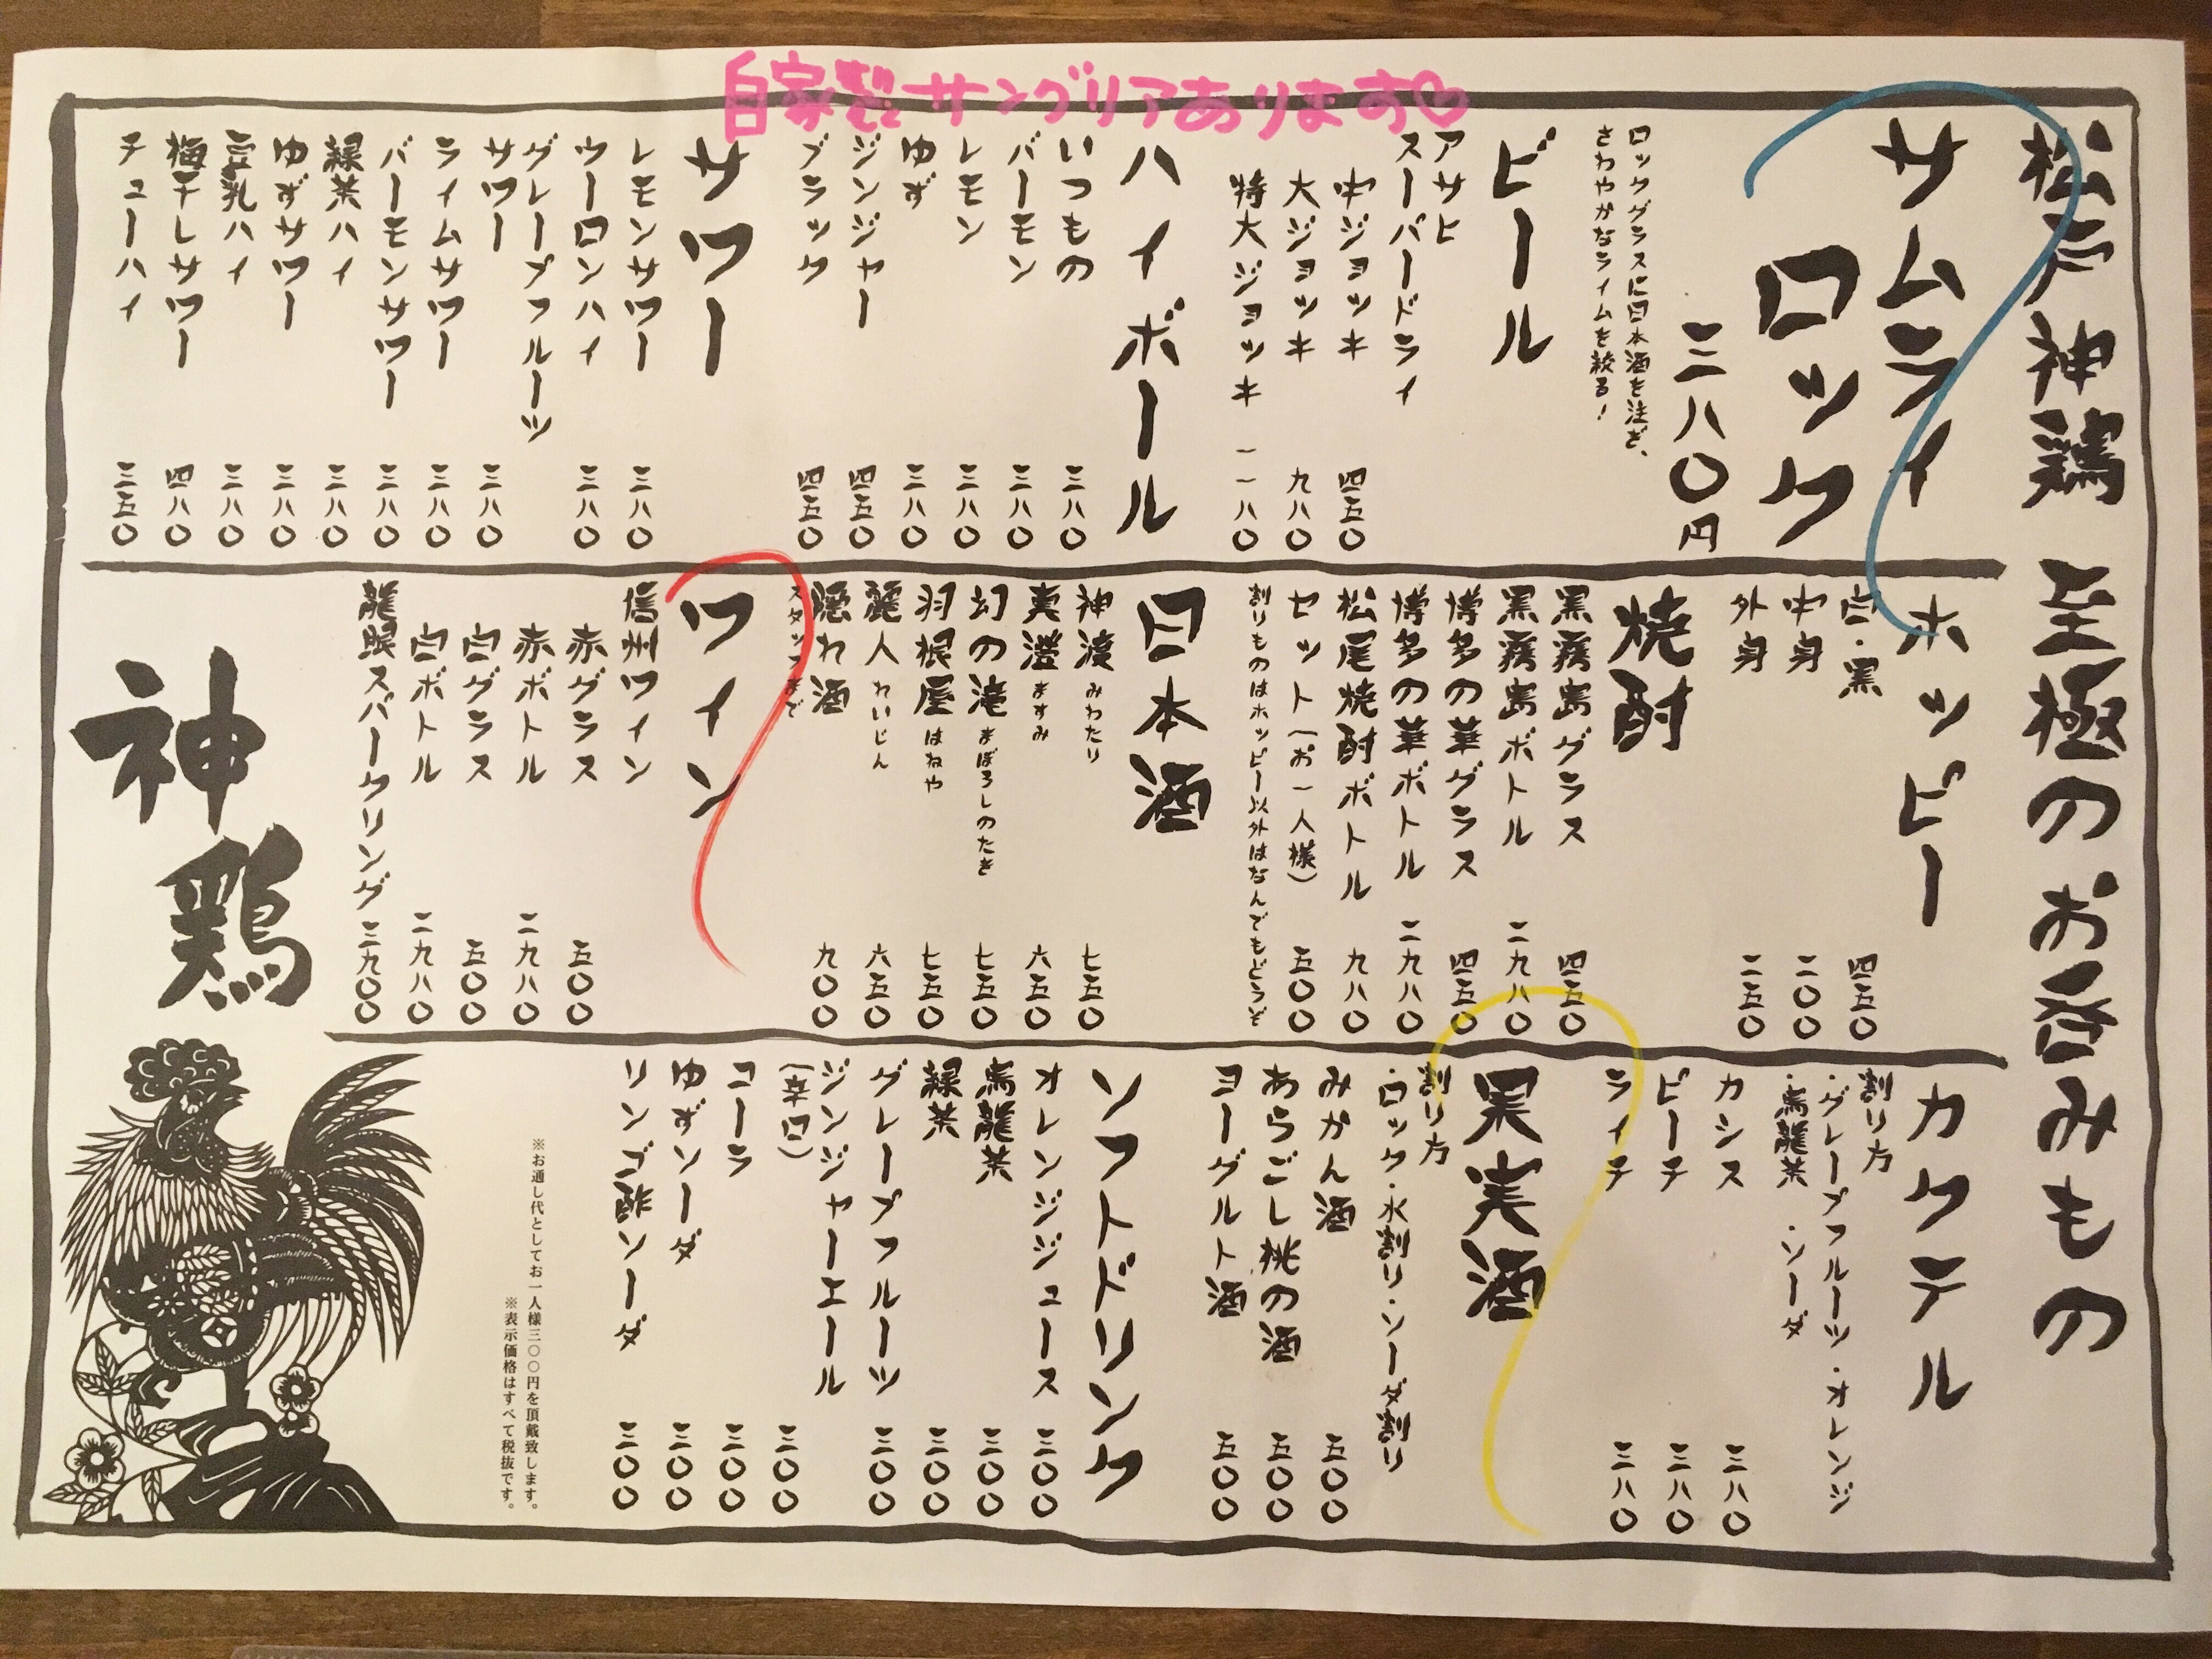 自家製サングリアあります♡
松戸神鶏 至極のお呑みもの
サムライ
ロック
三八〇円
ロックグラスに日本酒を注ぎ、
さわやかなライムを絞る!
ビール
アサヒ
スーパードライ
中ジョッキ 四五〇
大ジョッキ 九八〇
特大ジョッキ 一一八〇
ハイボール
いつもの 三八〇
バーモン 三八〇
レモン 三八〇
ゆず 三八〇
ジンジャー 四五〇
ブラック 四五〇
サワー
レモンサワー 三八〇
ウーロンハイ 三八〇
グレープフルーツ
サワー 三八〇
ライムサワー 三八〇
バーモンサワー 三八〇
緑茶ハイ 三八〇
ゆずサワー 三八〇
豆乳ハイ 三八〇
梅干しサワー 四八〇
チューハイ 三五〇
ホッピー
白・黒 四五〇
中身 二〇〇
外身 二五〇
焼酎
黒霧島グラス 四五〇
黒霧島ボトル 二九八〇
博多の華グラス 四五〇
博多の華ボトル 二九八〇
松尾焼酎ボトル 九八〇
セット(お一人様) 五〇〇
割りものはホッピー以外はなんでもどうぞ
日本酒
神渡 みわたり 七五〇
真澄 ますみ 六五〇
幻の滝 まぼろしのたき 七五〇
羽根屋 はねや 七五〇
麗人 れいじん 六五〇
隠れ酒 九〇〇
スタッフまで
ワイン
信州ワイン
赤グラス 五〇〇
赤ボトル 二九八〇
白グラス 五〇〇
白ボトル 二九八〇
龍眼スパークリング 三九〇〇
カクテル
割り方
・グレープフルーツ・オレンジ
・烏龍茶 ・ソーダ
カシス 三八〇
ピーチ 三八〇
ライチ 三八〇
果実酒
割り方
・ロック・水割り・ソーダ割り
みかん酒 五〇〇
あらごし桃の酒 五〇〇
ヨーグルト酒 五〇〇
ソフトドリンク
オレンジジュース 三〇〇
烏龍茶 三〇〇
緑茶 三〇〇
グレープフルーツ 三〇〇
ジンジャーエール
(辛口) 三〇〇
コーラ 三〇〇
ゆずソーダ 三〇〇
リンゴ酢ソーダ 三〇〇
※お通し代としてお一人様三〇〇円を頂戴致します。
※表示価格はすべて税抜です。
神鶏